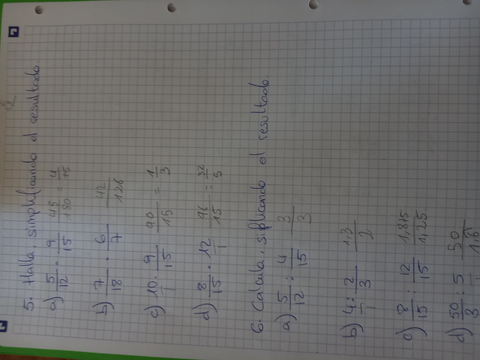 5. Halla simplificando el resultado
a) 5/12 · 9/15 45/180
b) 7/18 · 6/7 42/126
c) 10/1 · 9/15 90/15 = 1/3
d) 8/15 · 12/1 96/15 = 32/5
6. Calcula, siplicando el resultado
a) 5/12 : 4/15 3/3
b) 4/1 : 2/3 1,3/2
c) 8/15 : 12/15
d) 50/3 : 5